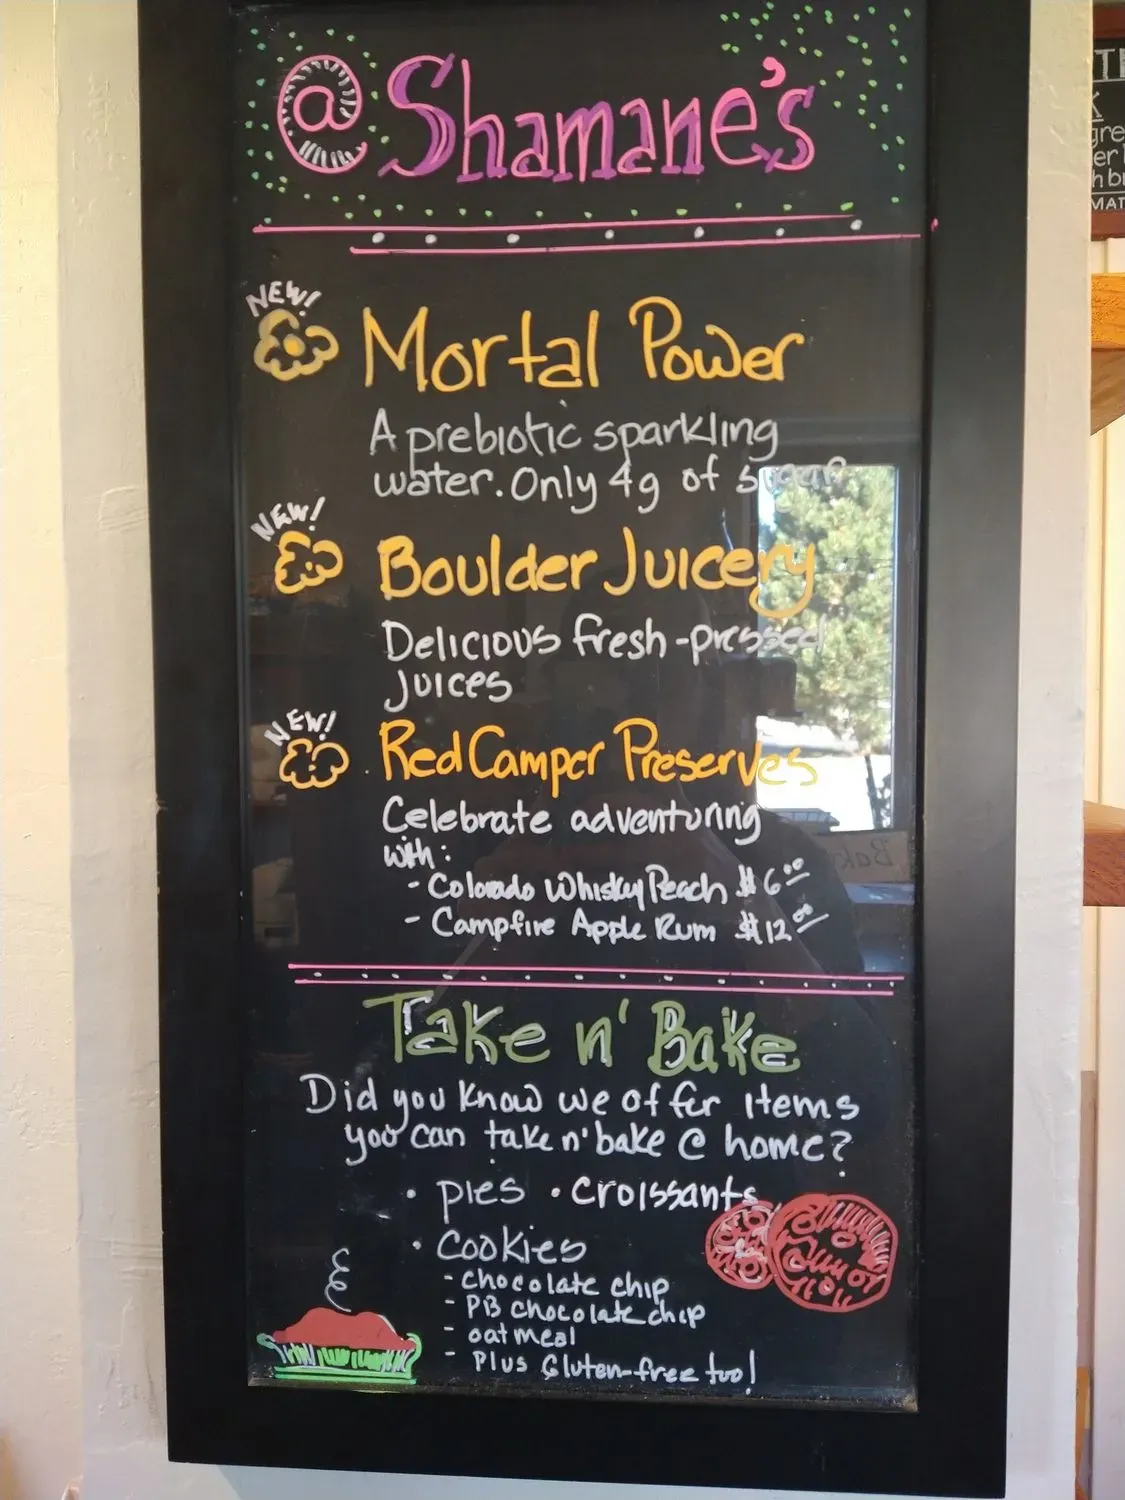 @ Shamane's
NEW!
Mortal Power
A prebiotic sparkling
water. Only 4g of sugar
NEW!
Boulder Juicery
Delicious fresh-pressed
juices
NEW!
Red Camper Preserves
Celebrate adventuring
with:
- Colorado Whiskey Peach $6.00
- Campfire Apple Rum $12.00
Take n' Bake
Did you know we offer items
you can take n' bake @ home?
• pies • croissants
• cookies
- chocolate chip
- PB chocolate chip
- oatmeal
- Plus Gluten-free too!